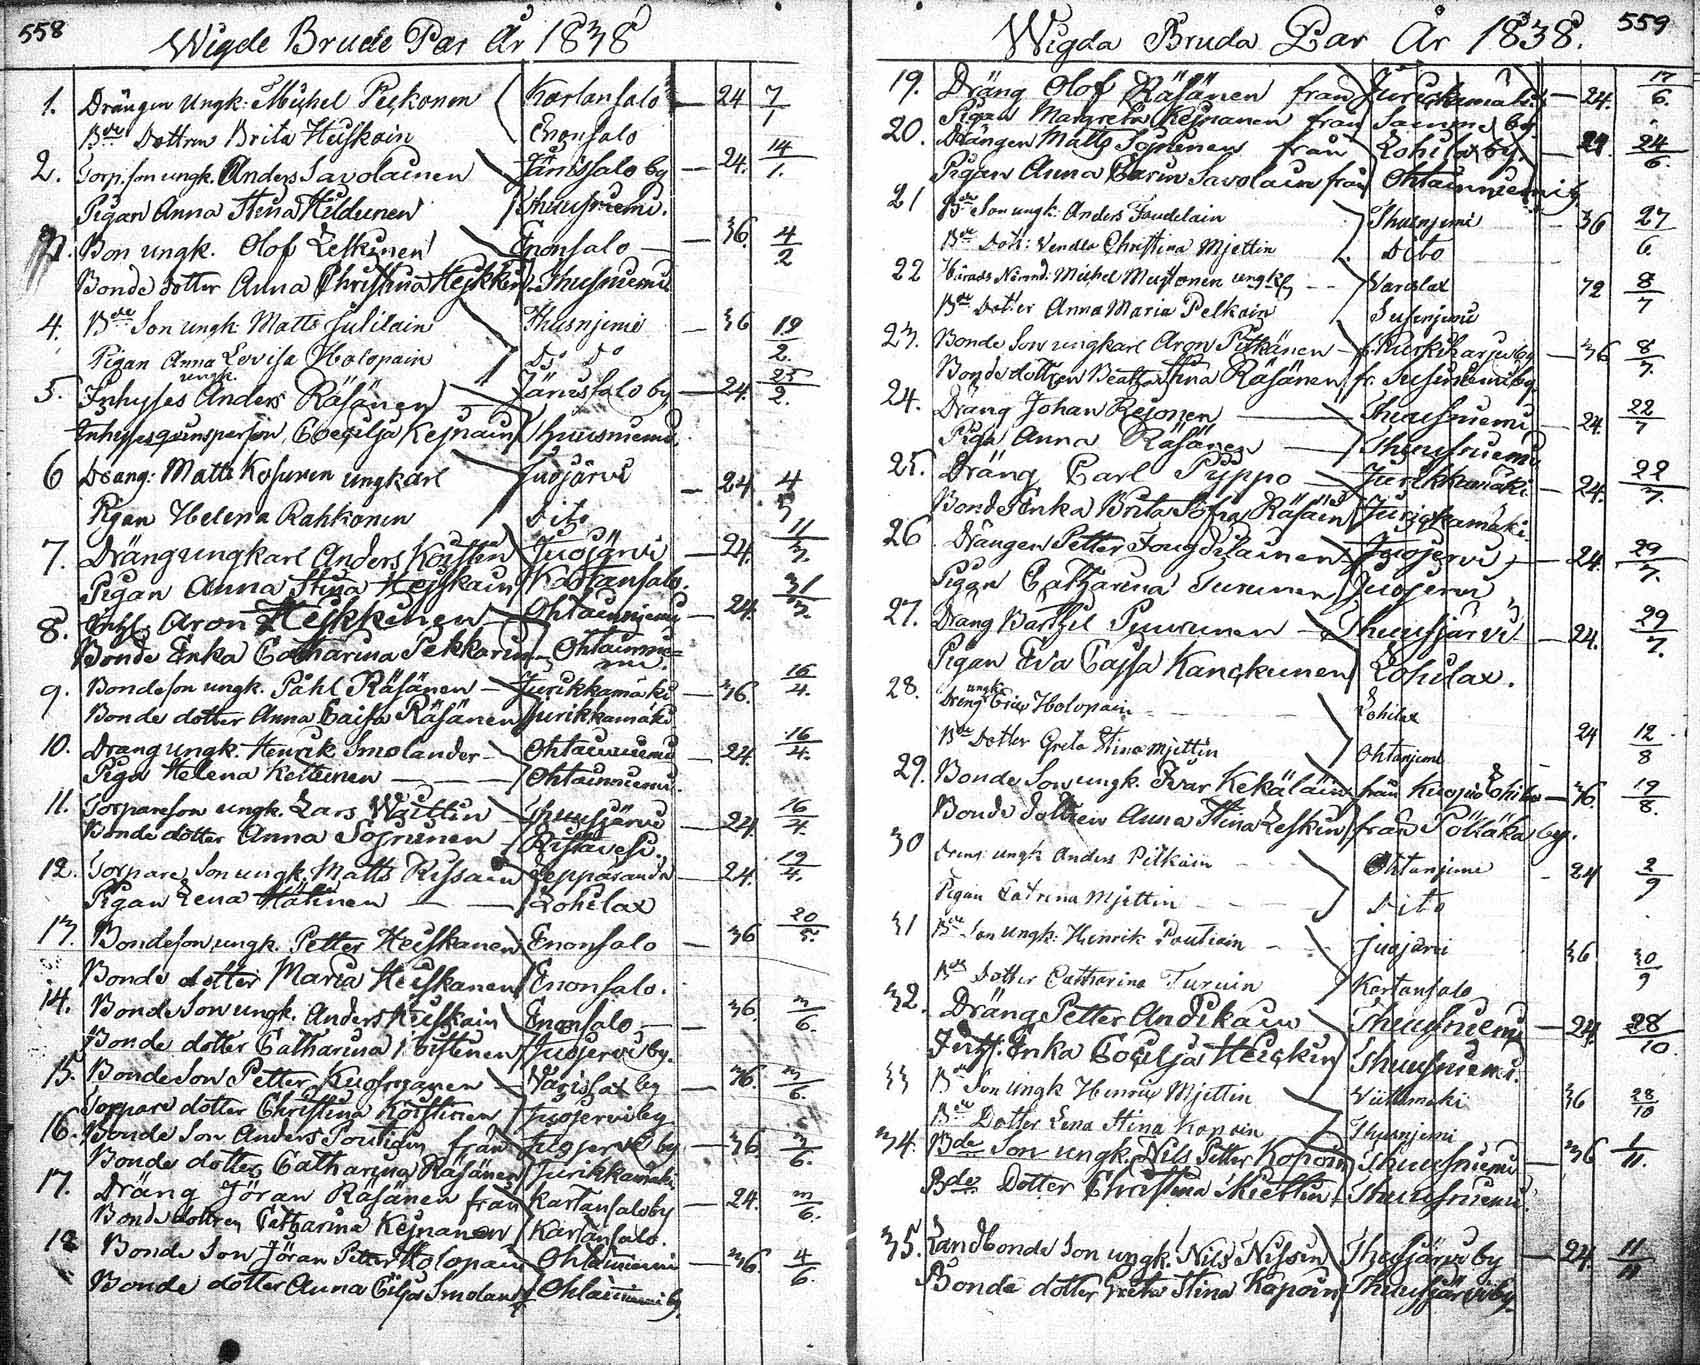 558
Wigde Brude Par År 1838
1. Drängen Ungk: Michel Pekonen Kartansalo 24 7/1
Bde Dottren Brita Heiskain Enonsalo
2. Torp: son ungk. Anders Savolainen Jänissalo by 24. 14/1.
Pigan Anna Stina Hildunen Thuusniemi.
3. Bon ungk. Olof Leskinen Enonsalo 36. 4/2
Bonde dotter Anna Christina Heikkin Thusniemi
4. Bde Son ungk: Matts Julilain Thusnjemi 36 19/2.
Pigan Anna Lovisa Holopain Do Do
ungk.
5. Inhyses Anders Räsänen Jänissalo by 24. 25/2.
Inhyses qvinsperson Coecilja Kejnain Thuusniemi
6 Dräng: Matts Kosunen ungkarl Juojärvi 24. 4/3
Pigan Helena Rahkonen Dito
7. Dräng ungkarl Anders Koistin Juojärvi 24. 11/3.
Pigan Anna Stina Heiskain Kartansalo.
8. Inhs. Aron Heikkinen Ohtainniemi 24. 31/3.
Bonde Enka Catharina Pekkarin Ohtainnie=
mi.
9. Bondeson ungk. Påhl Räsänen Jurikkamäki 36. 16/4.
Bonde dotter Anna Caisa Räsänen Jurikkamäki
10. Dräng ungk. Henrik Smolander Ohtainniemi 24. 16/4.
Piga Helena Kettunen Ohtainniemi.
11. Torpareson ungk. Lars Wättin Thuusjärvi 24. 16/4.
Bonde dotter Anna Soininen Ristavesi.
12. Torpare Son ungk. Matts Rissain Lepparanda 24. 19/4.
Pigan Lena Hätinen Lohilax
13. Bondeson ungk. Petter Heiskanen Enonsalo 36 20/5.
Bonde dotter Maria Heiskanen Enonsalo.
14. Bonde Son ungk. Anders Heiskain Enonsalo 36. 3/6.
Bonde dotter Catharina Koistinen Juojervi by.
15. Bonde Son Petter Kuosmanen Varislax by 36. 3/6.
Torpare dotter Christina Koistinen Juojervi by
16. Bonde Son Anders Poutiain från Juojervi by 36. 3/6.
Bonde dotter Catharina Räsänen Jurikkamäki
17. Dräng Jöran Räsänen från Kartansalo by 24. 3/6.
Bonde dottren Catharina Kejnanen Kartansalo.
18 Bonde Son Jöran Petter Holopain Ohtainiemi 36. 4/6.
Bonde dotter Anna Cilja Smoland Ohtainiemi by.
559
Wigda Bruda Par År 1838.
19. Dräng Olof Räsänen från Jurickamäki 24. 17/6.
Pigan Margreta Kejnanen från Samma by.
20. Drängen Matts Soininen från Lohilax by. 24 24/6.
Pigan Anna Carin Savolain från Ohtainniemi by
21 Bde Son ungk: Anders Foudelain Thusnjemi 36 27/6.
Bde Dott: Vendla Christina Mjettin Dito
22 Härads Nämnd: Michel Mustonen ungk Varslax 72 8/7
Bde Dotter Anna Maria Pelkoin Susinjemi
23. Bonde Son ungkarl Aron Pitkänen fr. Kurkiharju by 36 8/7.
Bonde dottren Beata Stina Räsänen fr. Susiniemi by.
24. Dräng Johan Rejonen Thuusniemi 24. 22/7
Piga Anna Räsänen Thuusniemi
25. Dräng Carl Pyppo Jurikkamäki 24. 22/7.
Bonde Enka Brita Sofia Räsäin Jurickamäki.
26. Drängen Petter Fougdilainen Juojervi 24. 29/7.
Pigan Catharina Turunen Juojervi
27. Dräng Barthil Puurunen Thuusjärvi 24. 29/7.
Pigan Eva Cajsa Kanckunen Lohilax.
ungk
28. Dreng Eric Holopain Lohilax 24 12/8
Bde Dotter Greta Stina Mjettin Ohtanjemi
29. Bonde Son ungk. Ivar Kekäläin från Kuopio Lohilax 36. 19/8.
Bonde dottren Anna Stina Leskin från Pölläkä by.
30 Dreng ungk Anders Pitkäin Ohtanjemi 24 2/9
Pigan Catrina Mjettin Dito
31 Bde Son ungk: Henrik Poutiain Juojärvi 36 30/9
Bde Dotter Catharina Turuin Kartansalo
32. Dräng Petter Andikain Thuusniemi 24. 28/10
Inhs. Enka Cecilja Heickin Thuusniemi.
33 Bde Son ungk Henric Mjettin Viitamäki 36 28/10
Bde Dotter Lena Stina Kopoin Thusnjemi
34. Bde Son ungk. Nils Petter Kopoin Thuusniemi 36 1/11.
Bdes Dotter Christina Miettin Thuusniemi.
35. Landbonde Son ungk. Nils Nissin Thusjärvi by 24. 11/11
Bonde dotter Greta Stina Kopoin Thuusjärvi by.